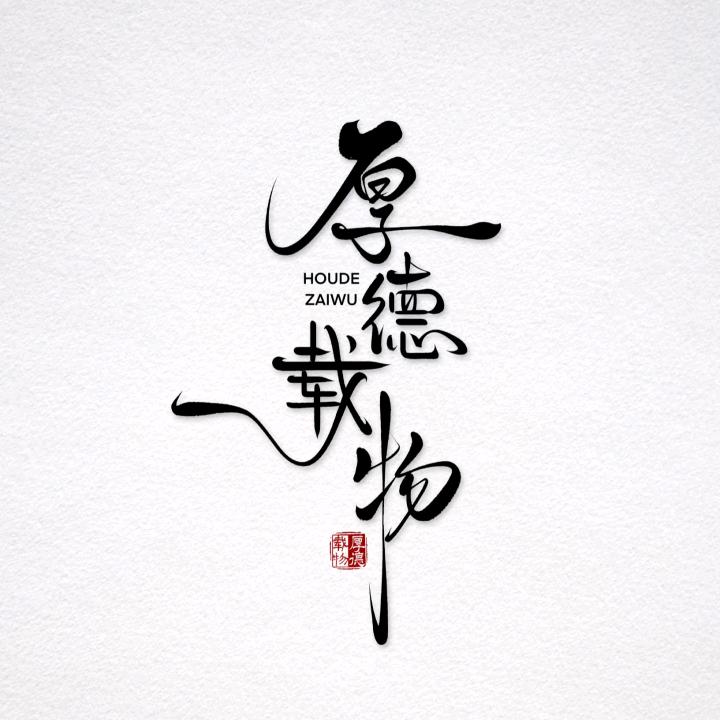 厚德载物
HOUDE
ZAIWU
厚德
载物